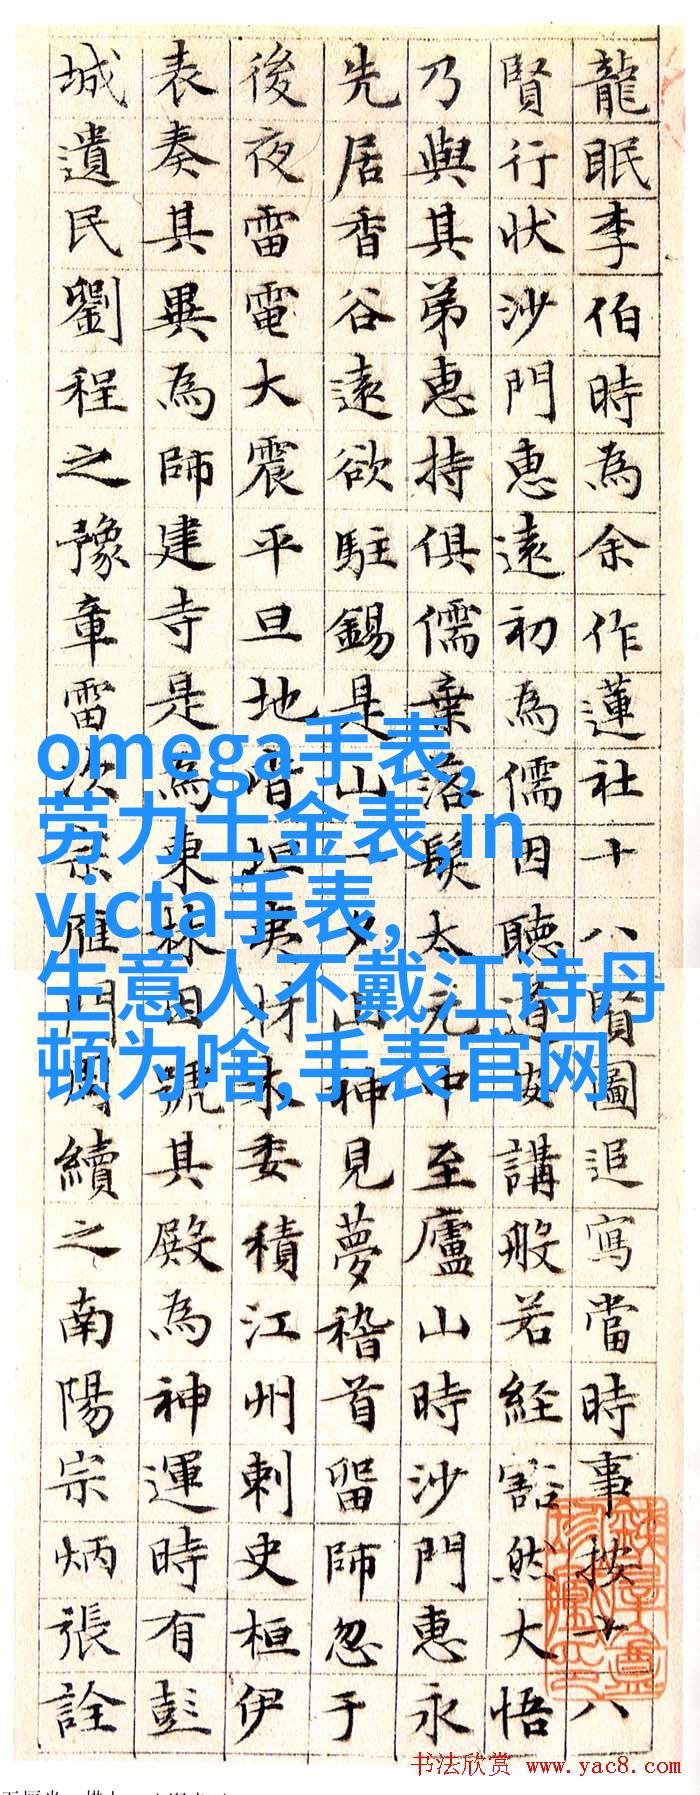 龍眠李伯時為余作蓮社十八賢圖追寫當時事按十八
賢行狀沙門惠遠初為儒因聽道安講般若經豁然大悟
乃與其弟惠持俱儒棄落髮太元中至廬山時沙門惠永
先居香谷遠欲駐錫是山一夕山神見夢稽首留師忽于
後夜雷電大震平旦地皆坦夷材木委積江州刺史桓伊
表奏其異為師建寺是為東林因號其殿為神運時有彭
城遺民劉程之豫章雷次宗雁門周續之南陽宗炳張詮
omega手表,
劳力士金表,in
victa手表,
生意人不戴江诗丹
顿为啥,手表官网
书法欣赏 www.yac8.com